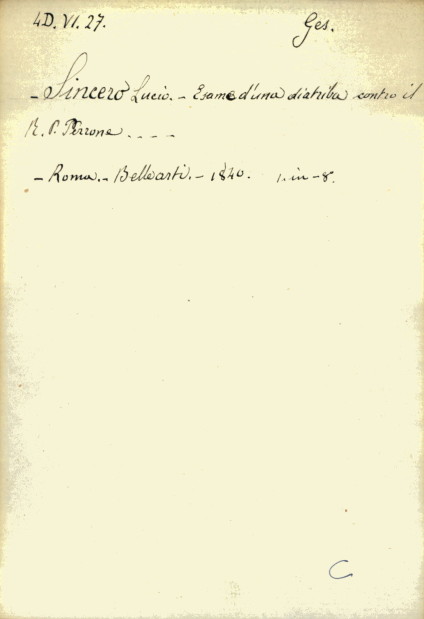 4D. VI. 27.
Ges.
- Sincero Lucio. - Esame d'una diatriba contro il
R. P. Perrone . . - -
- Roma. - Bellearti. - 1840. 1. in - 8.
C